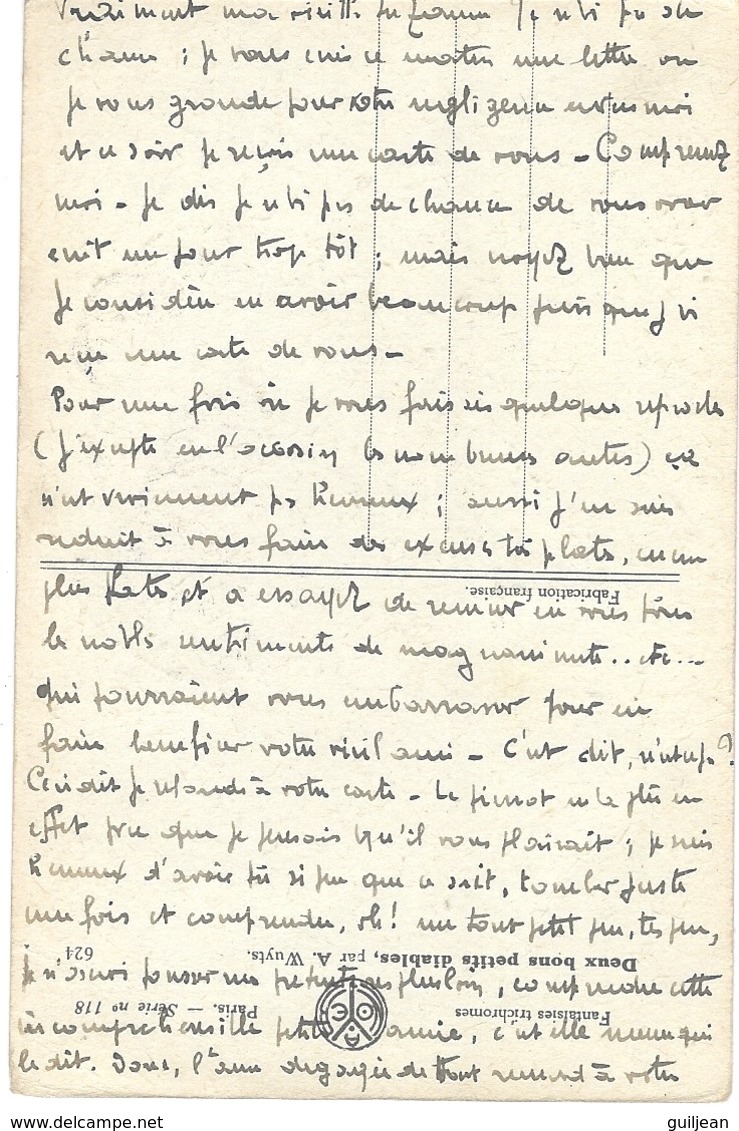 Vraiment ma vieille Suzanne je n'ai pas de
chance ; je vous écris ce matin une lettre où
je vous gronde pour votre négligence envers moi
et ce soir je reçois une carte de vous - Comprenez
moi - je dis je n'ai pas de chance de vous avoir
écrit un jour trop tôt ; mais voyez bien que
je considère en avoir beaucoup puisque j'ai
reçu une carte de vous -
Pour une fois où je vous fais quelques reproches
(j'excepte en l'occasion les nombreuses autres) ce
n'est vraiment pas heureux ; aussi j'en suis
réduit à vous faire des excuses très plates,
plus plates et à essayer de remuer en vous tous
les nobles sentiments de magnanimité.. etc...
qui pourraient vous embarrasser pour en
faire bénéficier votre vieil ami - C'est dit, n'est-ce pas ?
Ceci dit je réponds à votre carte - Le pierrot
effet parce que je pensais qu'il vous plairait ; je suis
heureux d'avoir su si peu que ce soit, tomber juste
une fois et comprendre, oh ! un tout petit peu, très peu,
je n'oserai pousser mes prétentions plus loin, comprendre cette
incompréhensible petite amie, c'est elle même qui
le dit. Donc, l'âme dégagée de tout remord à votre
Fabrication française.
Deux bons petits diables, par A. Wuyts.
624
Fantaisies trichromes
Paris. — Série n° 118
guiljean